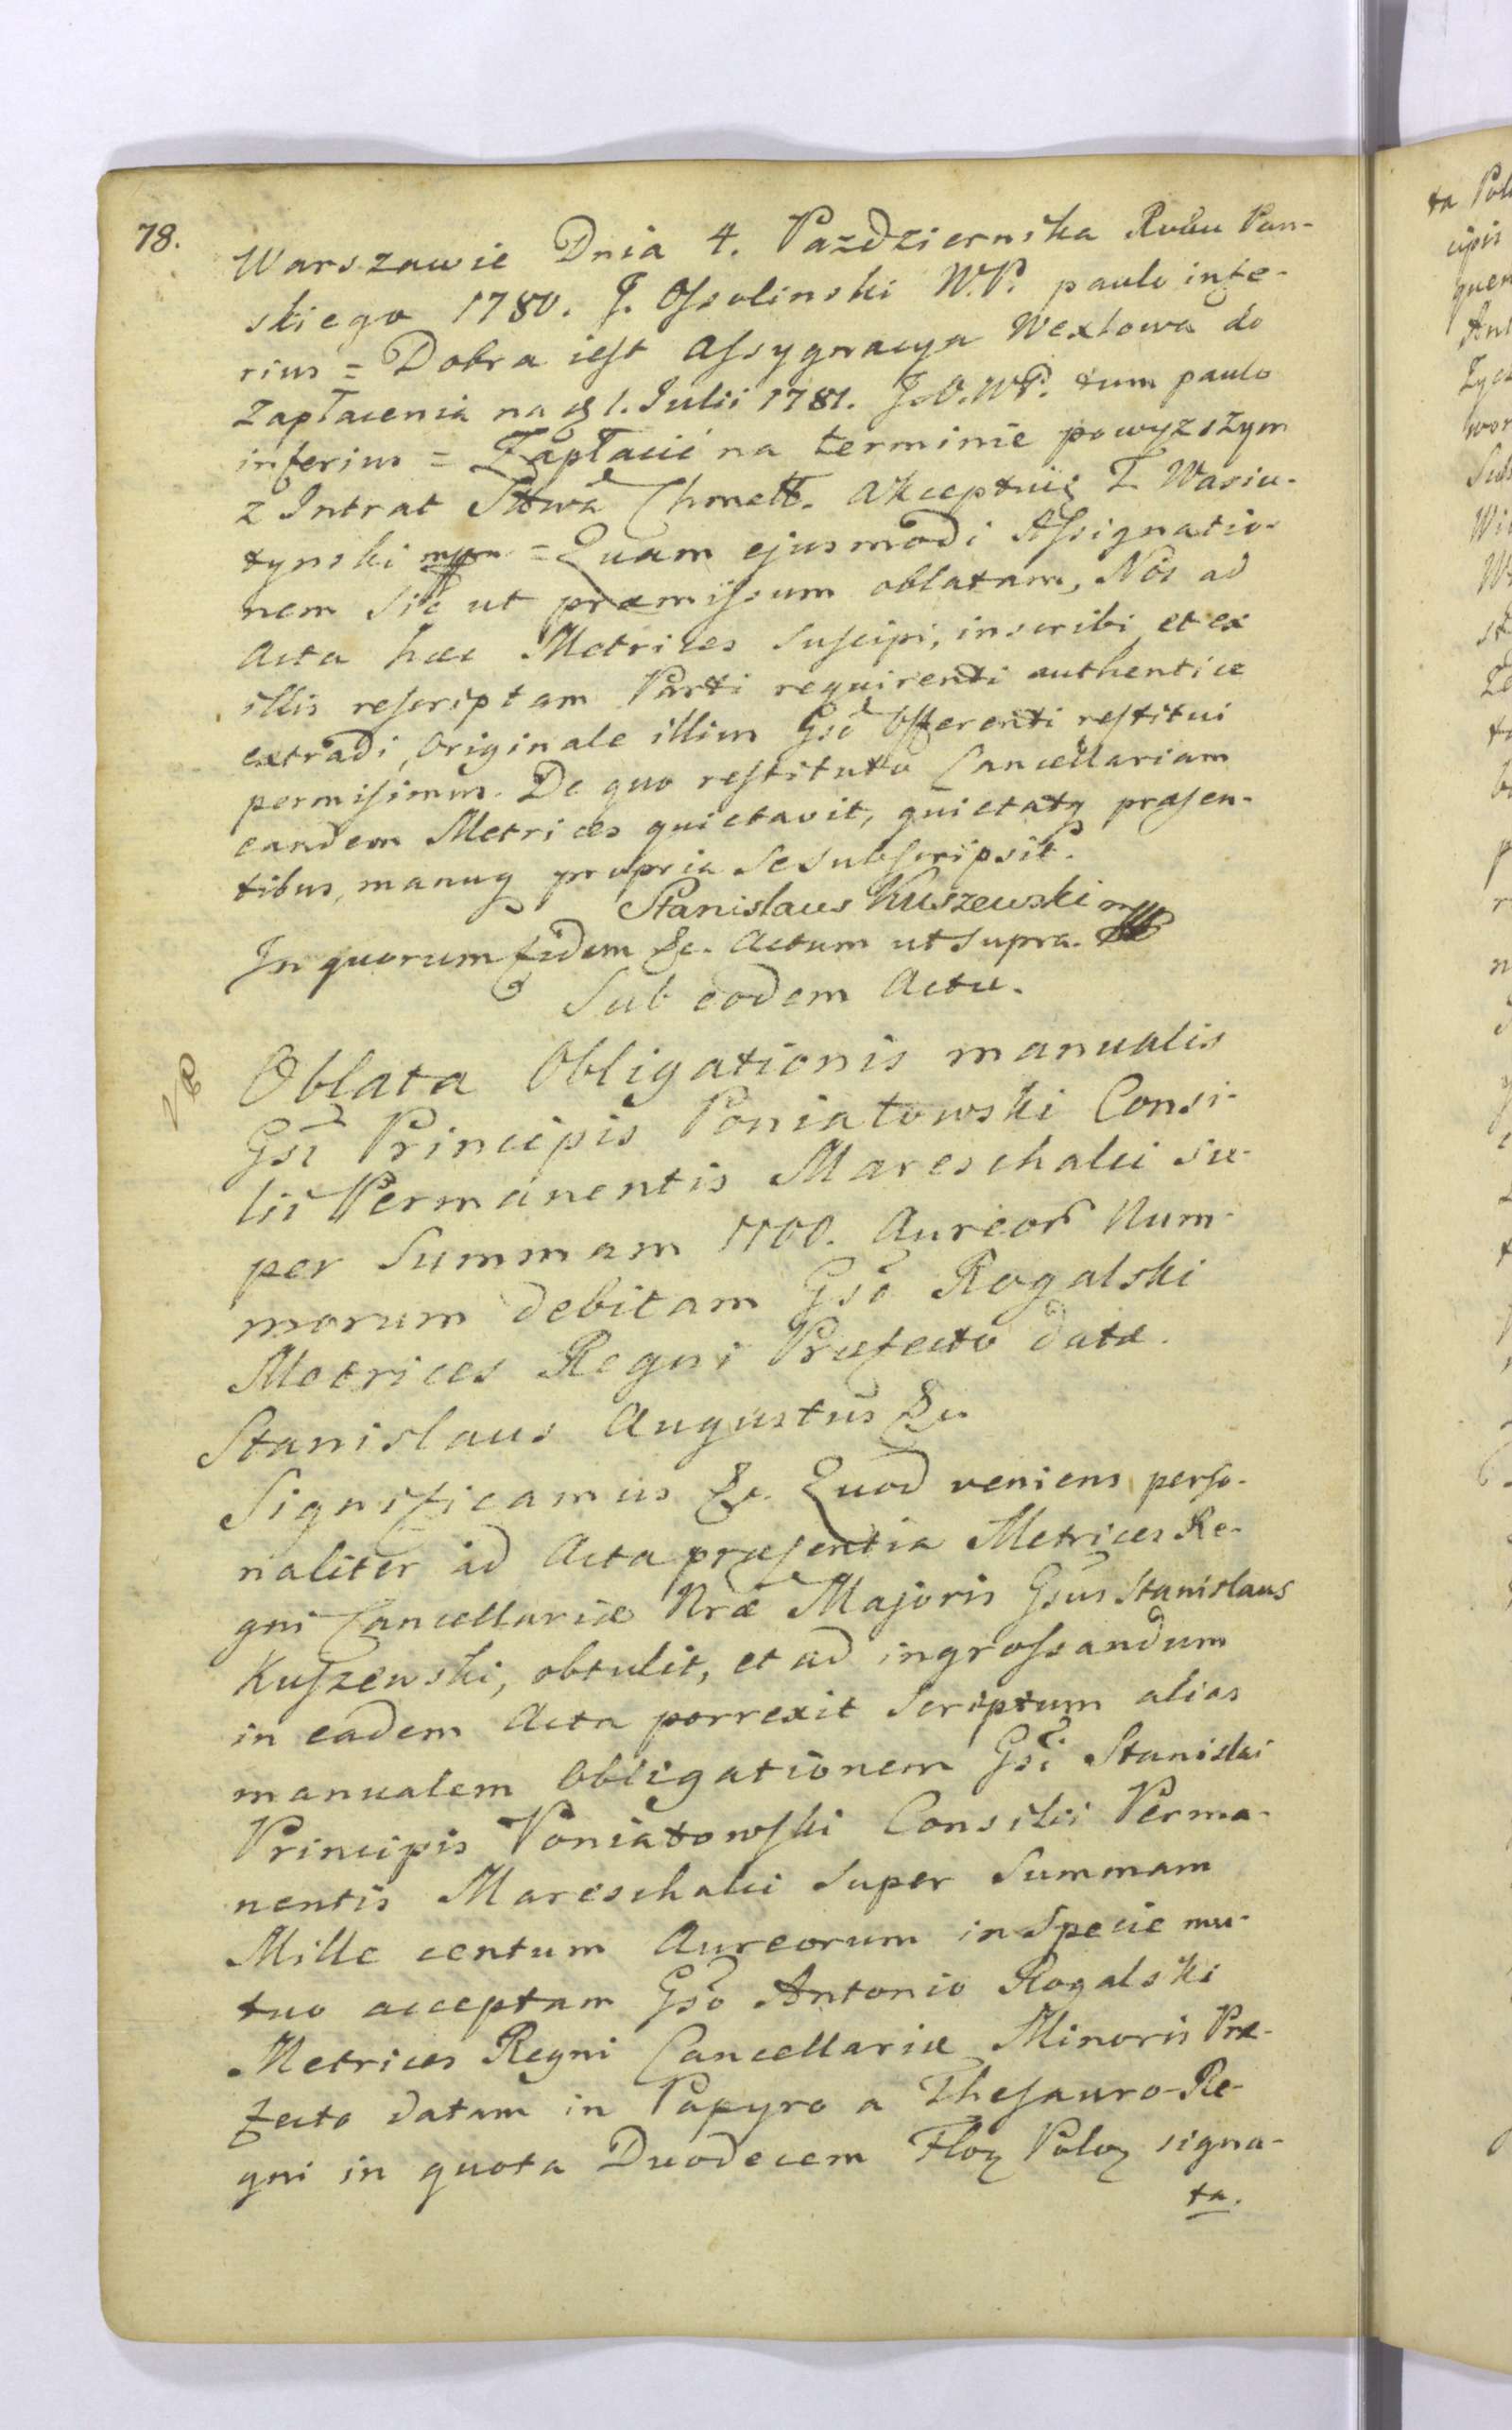 78.
Warszawie Dnia 4. Pazdziernika Roku Pan-
skiego 1780. J. Ossolinski W.P. paulo infe-
rius = Dobra iest Assygnacya Wexlowa do
Zapłacenia na 1. Julii 1781. J.O.W.P. tum paulo
inferius = Zapłacić na terminie powyzszym
z Intrat Sttwa Chmett. Akceptuię T. Wasiu-
tynski mpp = Quam ejusmodi Assignatio-
nem sic ut præmissum oblatam, Nos ad
Acta hæc Metrices suscipi, inscribi et ex
illis rescriptam Parti requirenti authentice
extradi, Originale illius Gso Offerenti restitui
permisimus. De quo restituto Cancellariam
eandem Metrices quietavit, quietatq præsen-
tibus, manuq propria se subscripsit.
Stanislaus Kuszewski mpp
In quorum fidem &c. Actum ut supra.
Sub eodem Actu.
Oblata Obligationis manualis
Gsi Principis Poniatowski Consi-
lii Permanentis Mareschalci su-
per Summam 1100. Aureor Num-
morum debitam Gso Rogalski
Metrices Regni Præfecto datæ.
Stanislaus Augustus &c.
Significamus &c. Quod veniens perso-
naliter ad Acta præsentia Metrices Re-
gni Cancellariæ Nræ Majoris Gsus Stanislaus
Kuszewski, obtulit, et ad ingrossandum
in eadem Acta porrexit Scriptum alias
manualem Obligationem Gsi Stanislai
Principis Poniatowski Consilii Perma-
nentis Mareschalci super Summam
Mille centum Aureorum in Specie mu-
tuo acceptam Gso Antonio Rogalski
Metrices Regni Cancellariæ Minoris Præ-
fecto datam in Papyro a Thesauro Re-
gni in quota Duodecem Floq Poloq signa-
ta.